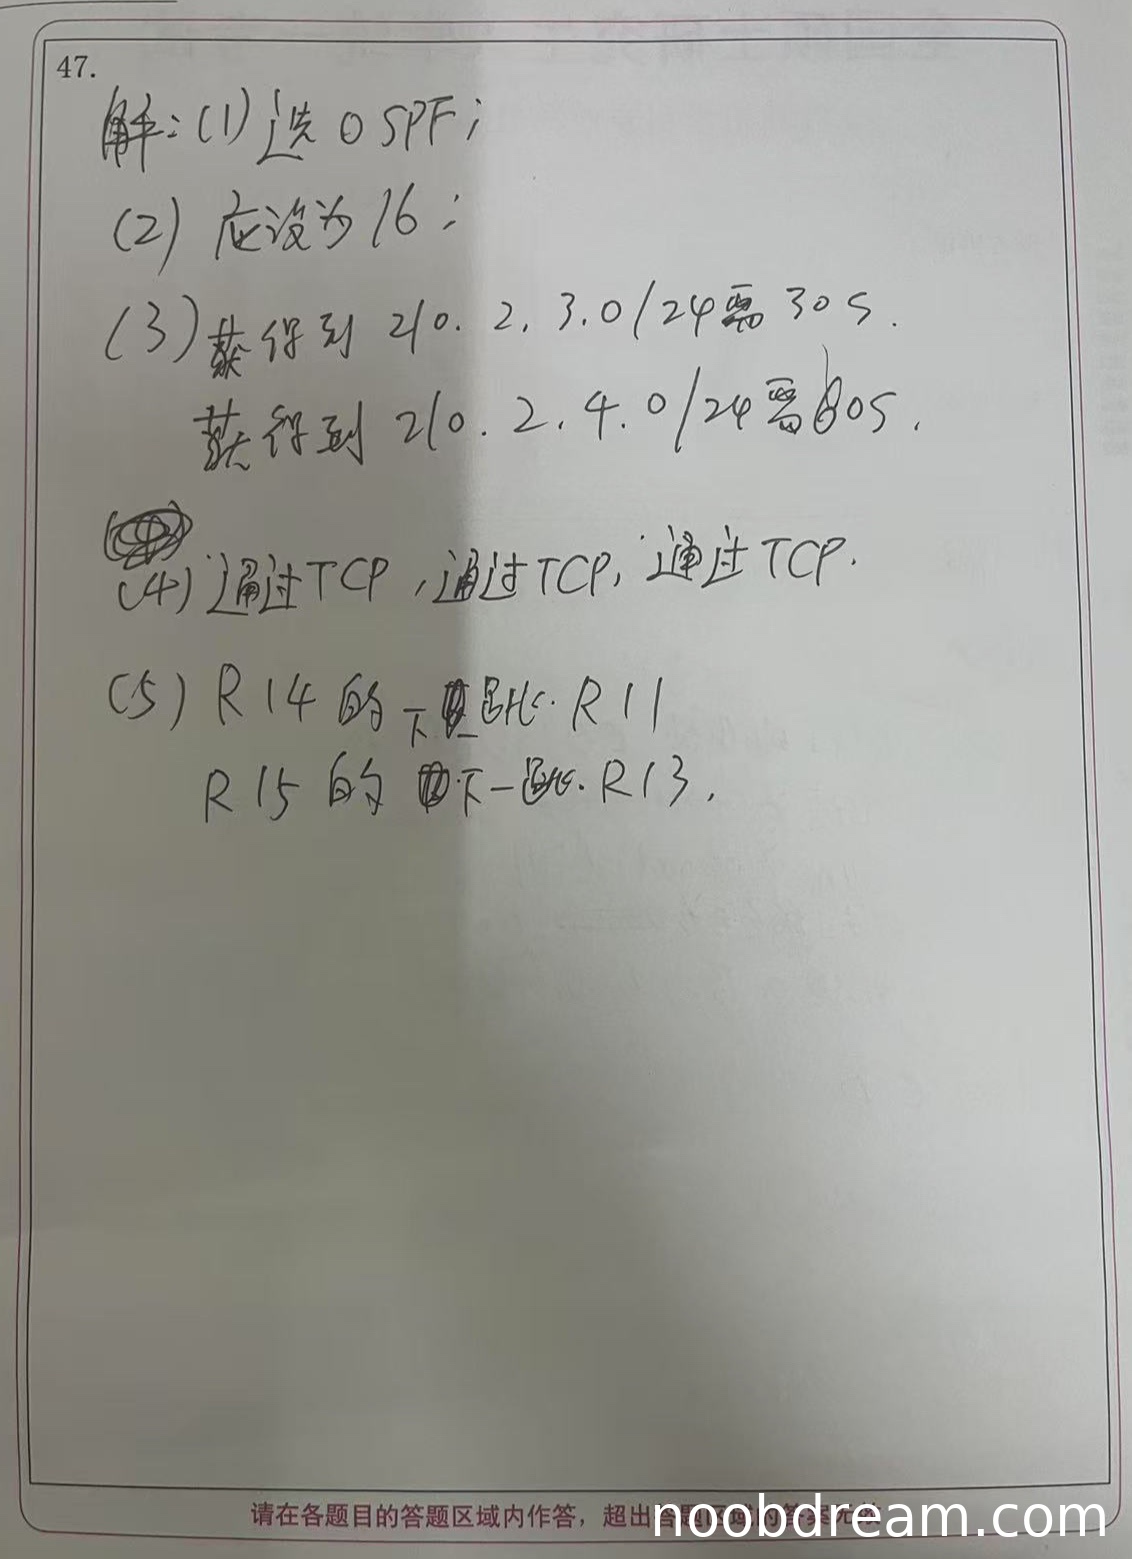 47.
解:(1)选OSPF;
(2)应设为16;
(3)获得到 210.2.3.0/24需30s.
获得到 210.2.4.0/24需60s.
(4)通过TCP,通过TCP,通过TCP.
(5) R14的下 跳. R11
R15的 下一跳. R13.
请在各题目的答题区域内作答,超出答题区域的答案无效
noobdream.com